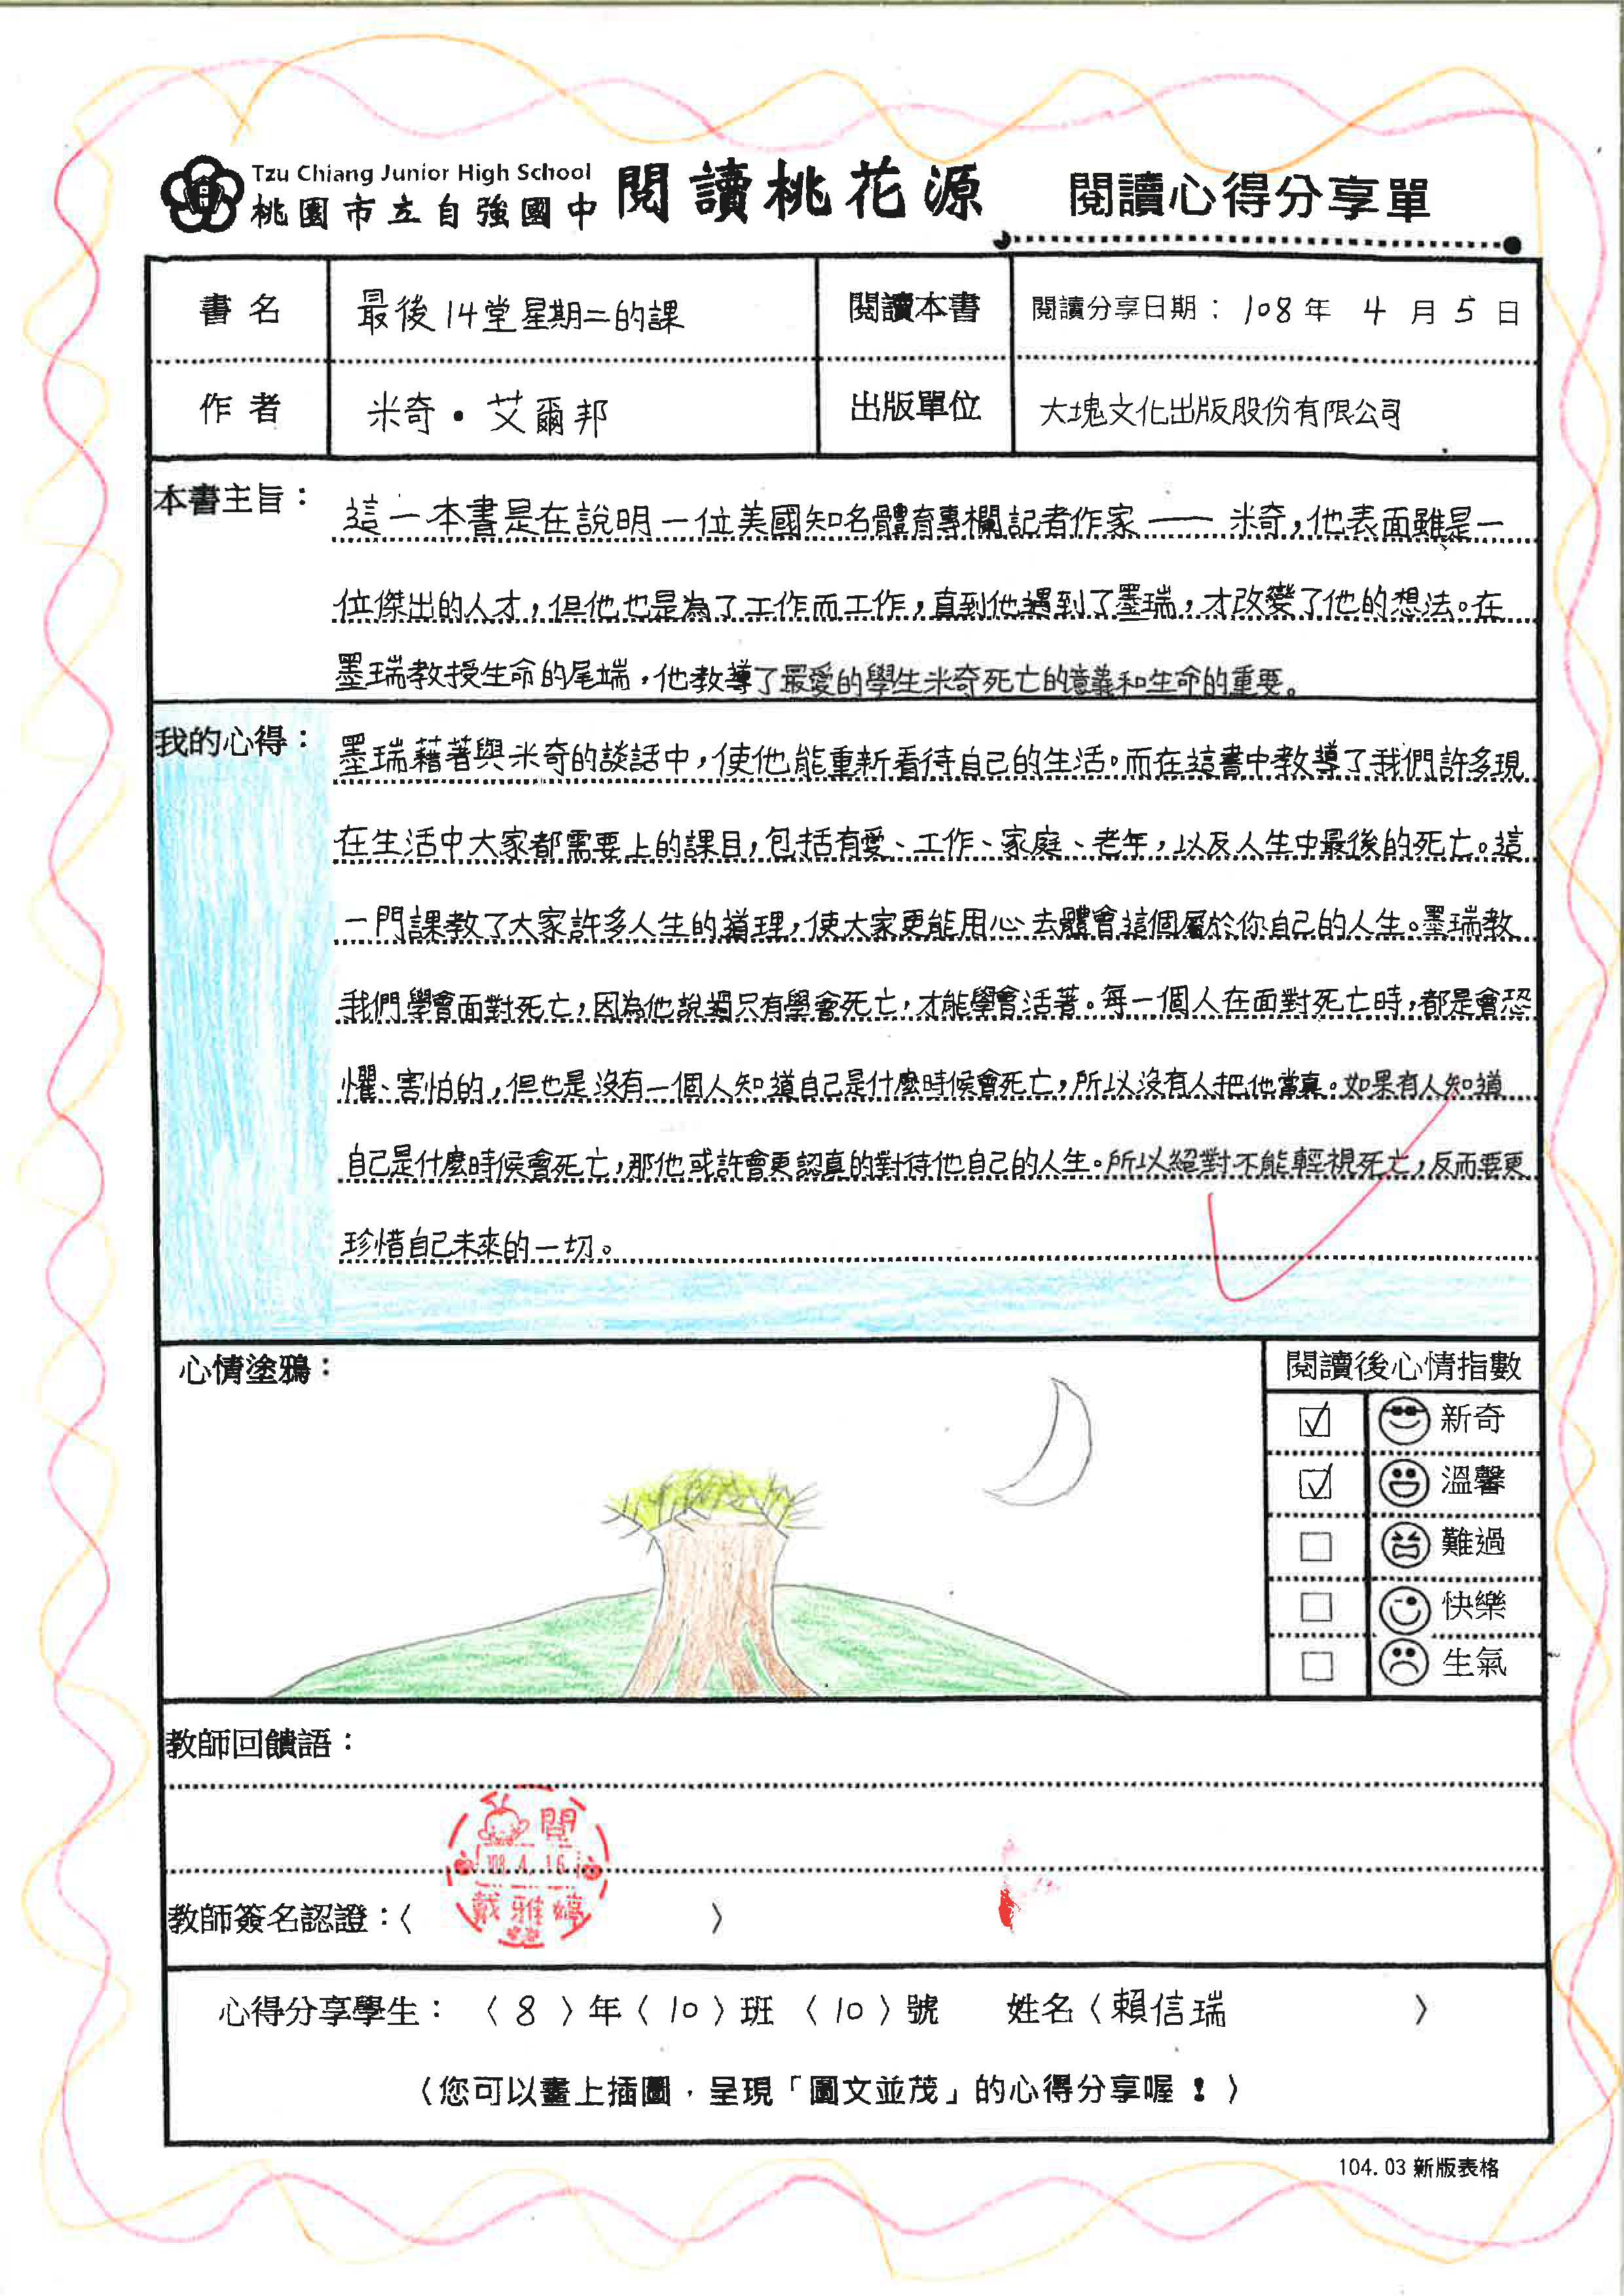 Tzu Chiang Junior High School
桃園市立自強國中 閱讀桃花源 閱讀心得分享單
書名 最後14堂星期二的課 閱讀本書 閱讀分享日期：108年 4月5日
作者 米奇・艾爾邦 出版單位 大塊文化出版股份有限公司
本書主旨：這一本書是在說明一位美國知名體育專欄記者作家——米奇,他表面雖是一
位傑出的人才,但他也是為了工作而工作,直到他遇到了墨瑞,才改變了他的想法。在
墨瑞教授生命的尾端,他教導了最愛的學生米奇死亡的意義和生命的重要。
我的心得：墨瑞藉著與米奇的談話中,使他能重新看待自己的生活。而在這書中教導了我們許多現
在生活中大家都需要上的課目,包括有愛、工作、家庭、老年,以及人生中最後的死亡。這
一門課教了大家許多人生的道理,使大家更能用心去體會這個屬於你自己的人生。墨瑞教
我們學會面對死亡,因為他說過只有學會死亡,才能學會活著。每一個人在面對死亡時,都是會恐
懼、害怕的,但也是沒有一個人知道自己是什麼時候會死亡,所以沒有人把他當真。如果有人知道
自己是什麼時候會死亡,那他或許會更認真的對待他自己的人生。所以絕對不能輕視死亡,反而要更
珍惜自己未來的一切。
心情塗鴉：
閱讀後心情指數
☑ 新奇
☑ 溫馨
□ 難過
□ 快樂
□ 生氣
教師回饋語：
閱
108.4.16
戴雅婷
教師簽名認證：〈 〉
心得分享學生：〈8〉年〈10〉班〈10〉號 姓名〈賴信瑞 〉
〈您可以畫上插圖，呈現「圖文並茂」的心得分享喔！〉
104.03 新版表格